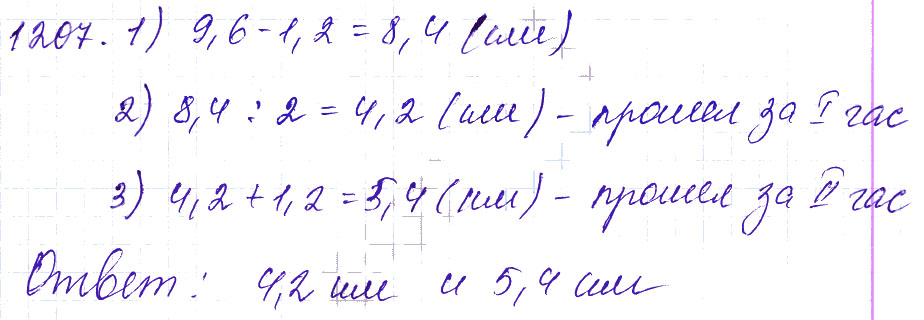 1207. 1) 9,6 - 1,2 = 8,4 (км)
2) 8,4 : 2 = 4,2 (км) - прошел за I час
3) 4,2 + 1,2 = 5,4 (км) - прошел за II час
Ответ: 4,2 км и 5,4 км